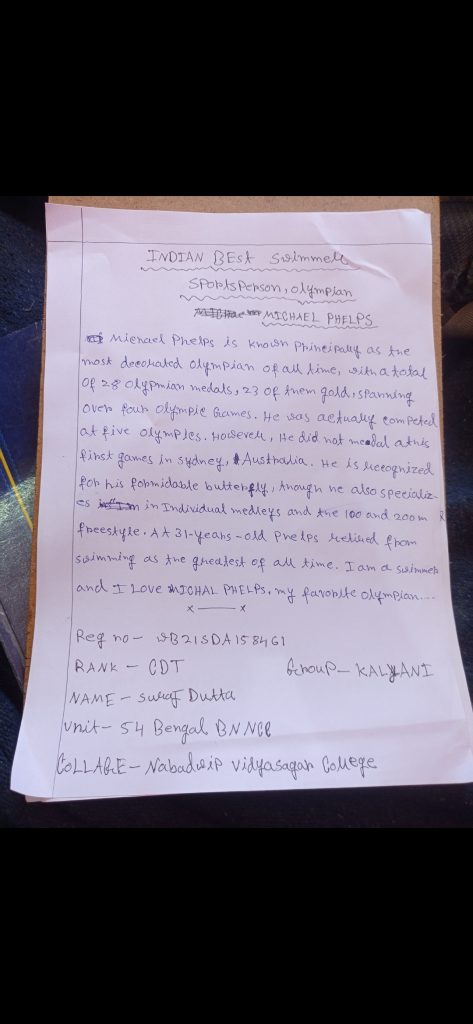 INDIAN BEst Swimmer
SportsPerson, Olympian
MICHAEL PHELPS
Michael Phelps is known Principally as the
most decorated Olympian of all time, with a total
Of 28 Olypmian medals, 23 of them gold, spanning
Over four Olympic Games. He was actually competed
at five Olympics. However, He did not medal at his
first games in Sydney, Australia. He is recognized
for his formidable butterfly, though he also specializ-
es in Individual medleys and the 100 and 200m
freestyle. At 31-years-old Phelps retired from
swimming as the greatest of all time. I am a swimmer
and I Love MICHAL PHELPS. my favorite Olympian....
x —— x
Reg no- WB21SDA158461
RANK - CDT Group- KALYANI
NAME - Suraj Dutta
Unit- 54 Bengal BN NCC
COLLAGE- Nabadwip Vidyasagar College